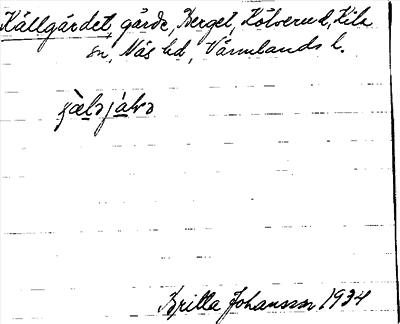 Källgärdet, gärde, Berget, Kölverud, Kila
sn, Näs hd, Värmlands l.
Brilla Johansson 1934